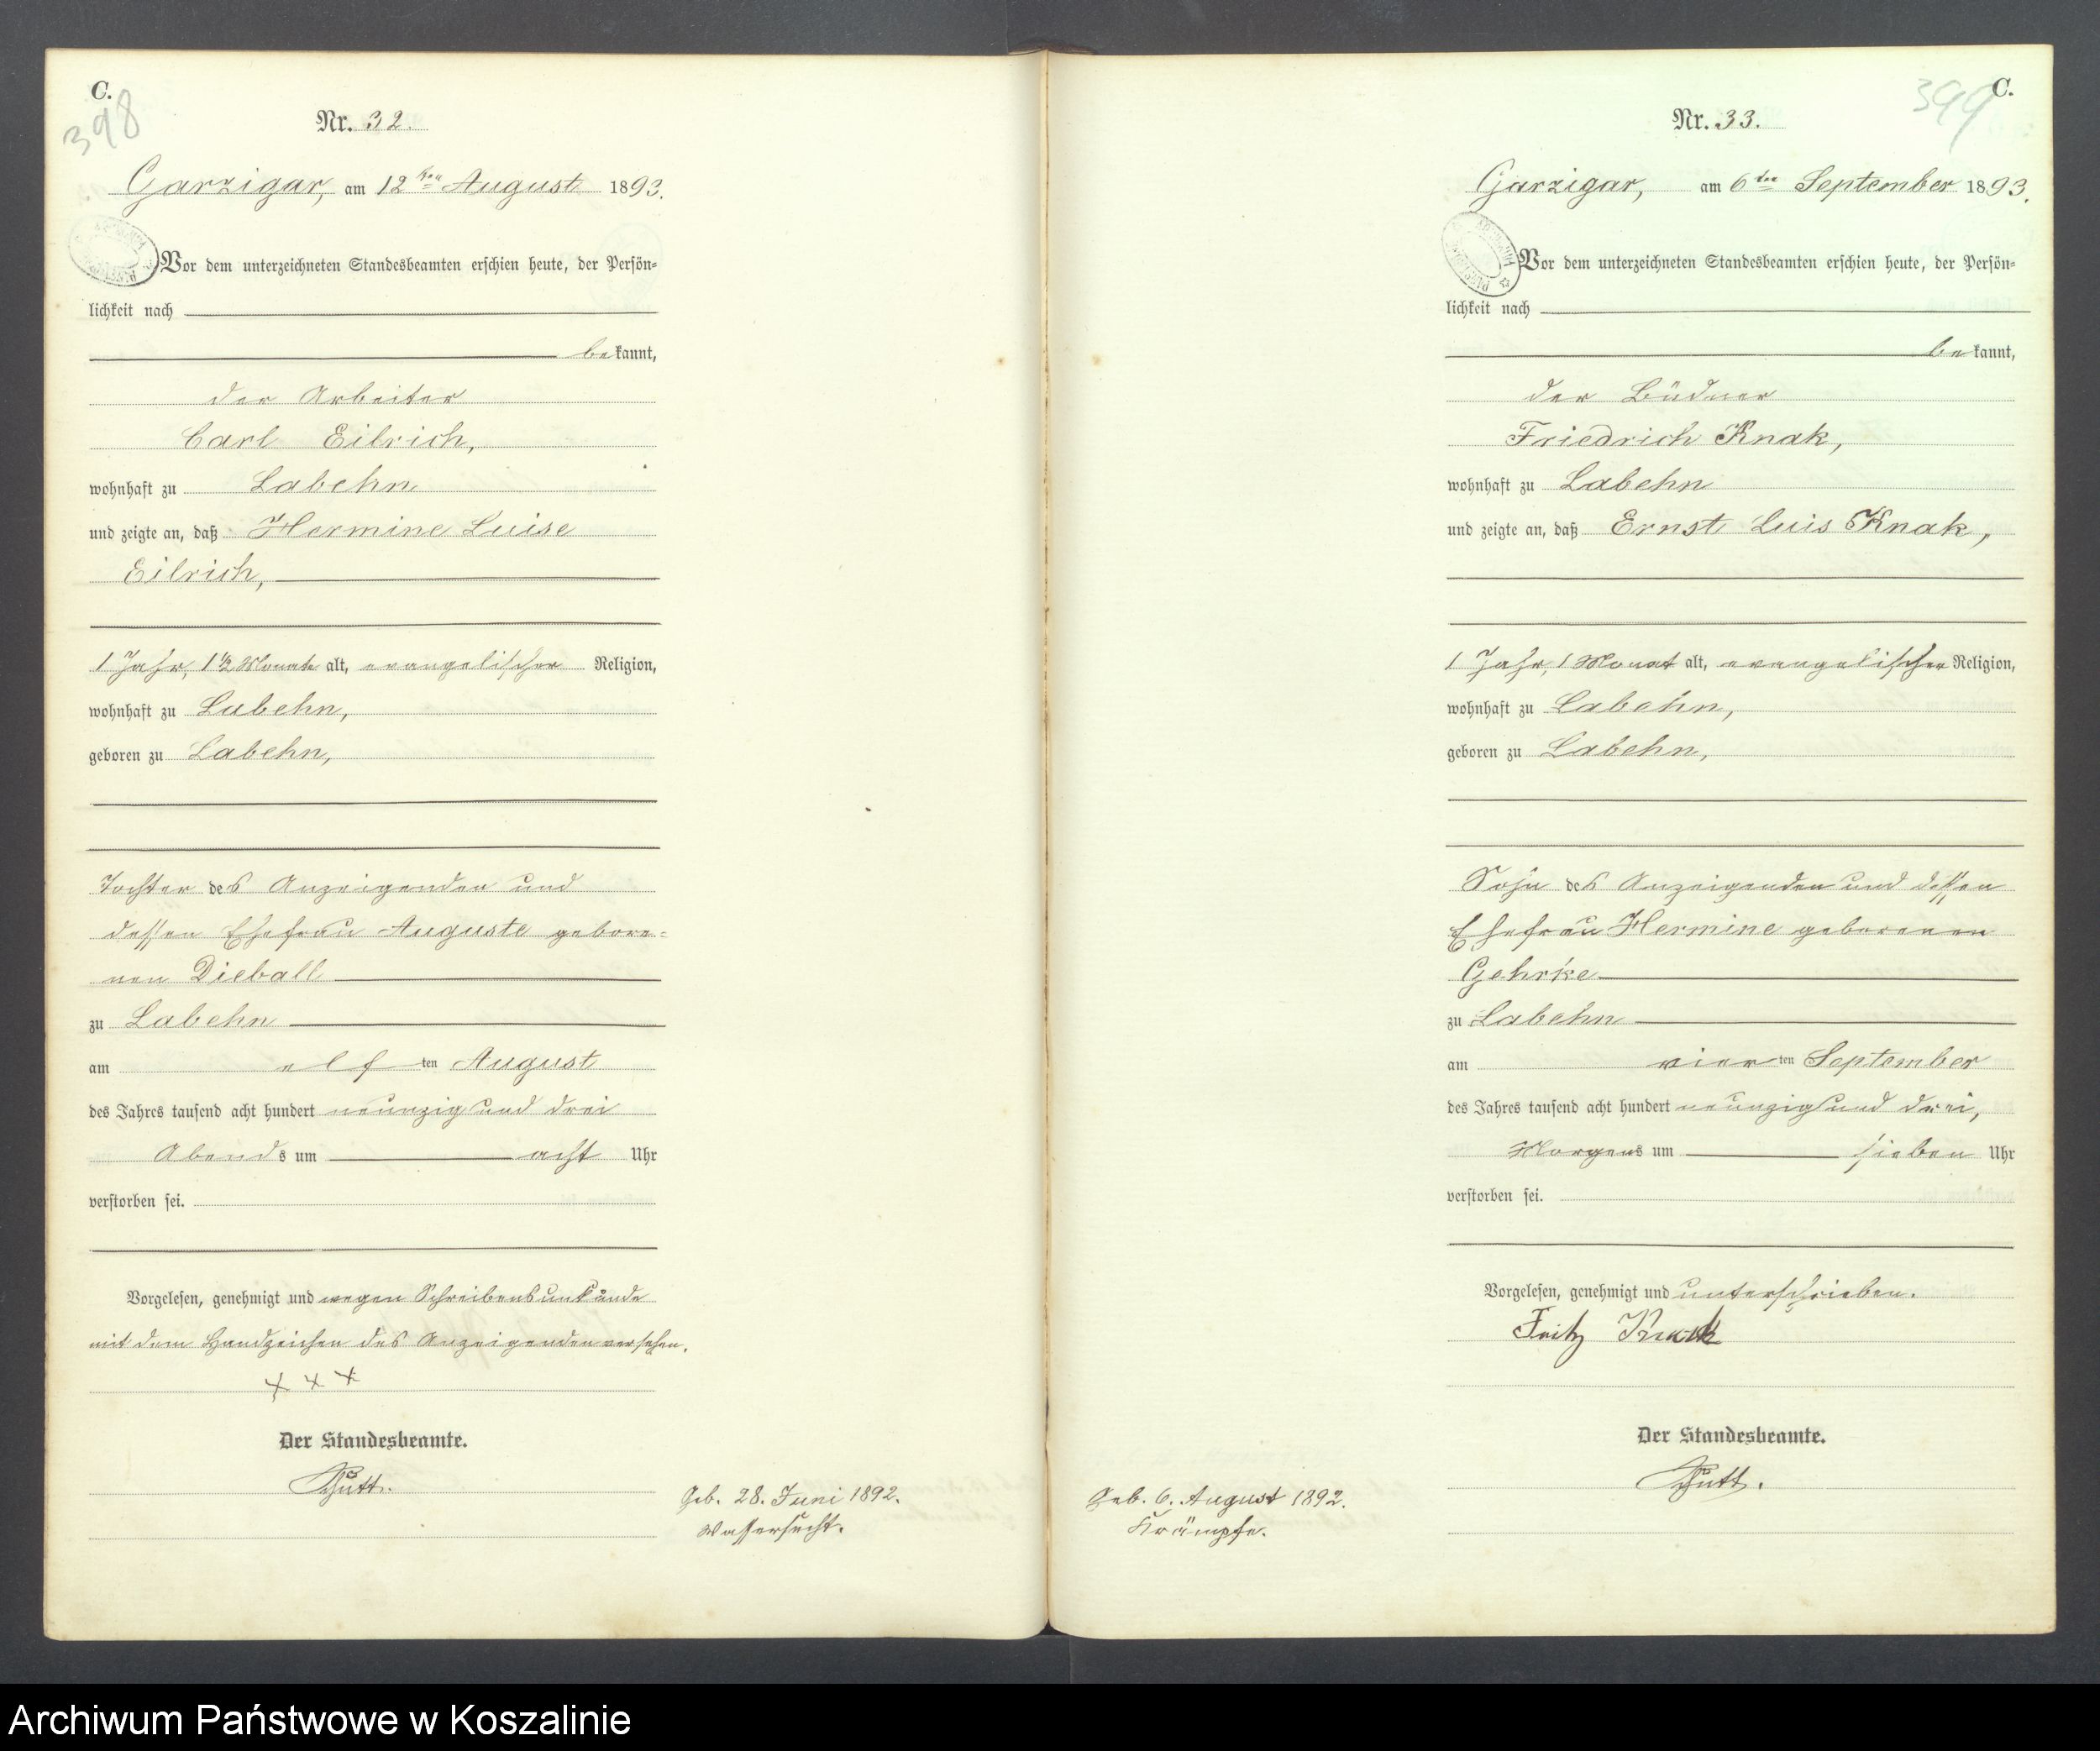 C.
398
Nr. 32.
Garzigar, am 12ten August 1893.
Vor dem unterzeichneten Standesbeamten erschien heute, der Persön=
lichkeit nach
bekannt,
der Arbeiter
Carl Eilrich,
wohnhaft zu Labehn
und zeigte an, daß Hermine Luise
Eilrich,
1 Jahr, 1 ½ Monate alt, evangelischer Religion,
wohnhaft zu Labehn,
geboren zu Labehn,
Tochter des Anzeigenden und
dessen Ehefrau Auguste gebore=
nen Dieball
zu Labehn
am elften August
des Jahres tausend acht hundert neunzig und drei
Abends um acht Uhr
verstorben sei.
Vorgelesen, genehmigt und wegen Schreibensunkunde
mit dem Handzeichen des Anzeigenden versehen.
+ + +
Der Standesbeamte.
Geb. 28. Juni 1892.
Wassersucht.
C.
399
Nr. 33.
Garzigar, am 6ten September 1893.
Vor dem unterzeichneten Standesbeamten erschien heute, der Persön=
lichkeit nach
bekannt,
der Büdner
Friedrich Knak,
wohnhaft zu Labehn
und zeigte an, daß Ernst Luis Knak,
1 Jahr, 1 Monat alt, evangelischer Religion,
wohnhaft zu Labehn,
geboren zu Labehn,
Sohn des Anzeigenden und dessen
Ehefrau Hermine geborenen
Gehrke
zu Labehn
am vierten September
des Jahres tausend acht hundert neunzig und drei,
Morgens um sieben Uhr
verstorben sei.
Vorgelesen, genehmigt und unterschrieben.
Fritz Knack
Der Standesbeamte.
Geb. 6. August 1892.
Krämpfe.
Archiwum Państwowe w Koszalinie